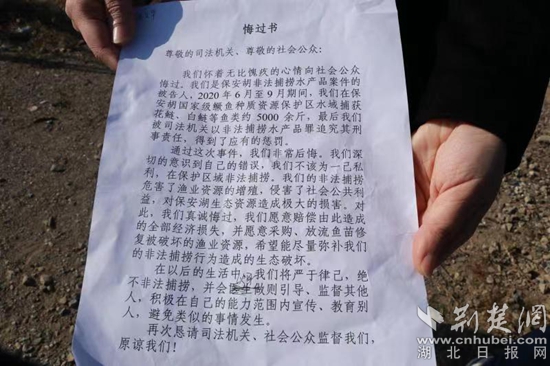 悔过书
尊敬的司法机关、尊敬的社会公众:
我们怀着无比愧疚的心情向社会公众
悔过。我们是保安胡非法捕捞水产品案件的
被告人,2020年6月至9月期间,我们在保
安胡国家级鳜鱼种质资源保护区水域捕获
花鲢、白鲢等鱼类约 5000 余斤,最后我们
被司法机关以非法捕捞水产品罪追究其刑
事责任,得到了应有的惩罚。
通过这次事件,我们非常后悔、我们深
切的意识到自己的错误,我们不该为一己私
利,在保护区域非法捕捞。我们的非法捕捞
危害了渔业资源的增殖,侵害了社会公共利
益,对保安湖生态资源造成极大的损害。对
此,我们真诚悔过,我们愿意赔偿由此造成
的全部经济损失,并愿意采购、放流鱼苗修
复被破坏的渔业资源,希望能尽量弥补我们
的非法捕捞行为造成的生态破坏。
在以后的生活中,我们将严于律己,绝
不非法捕捞,并会以身做则引导、监督其他
人,积极在自己的能力范围内宣传、教育别
人,避免类似的事情发生。
再次恳请司法机关、社会公众监督我们,
原谅我们!
荆楚网
www.cnhubei.com
湖北日报网